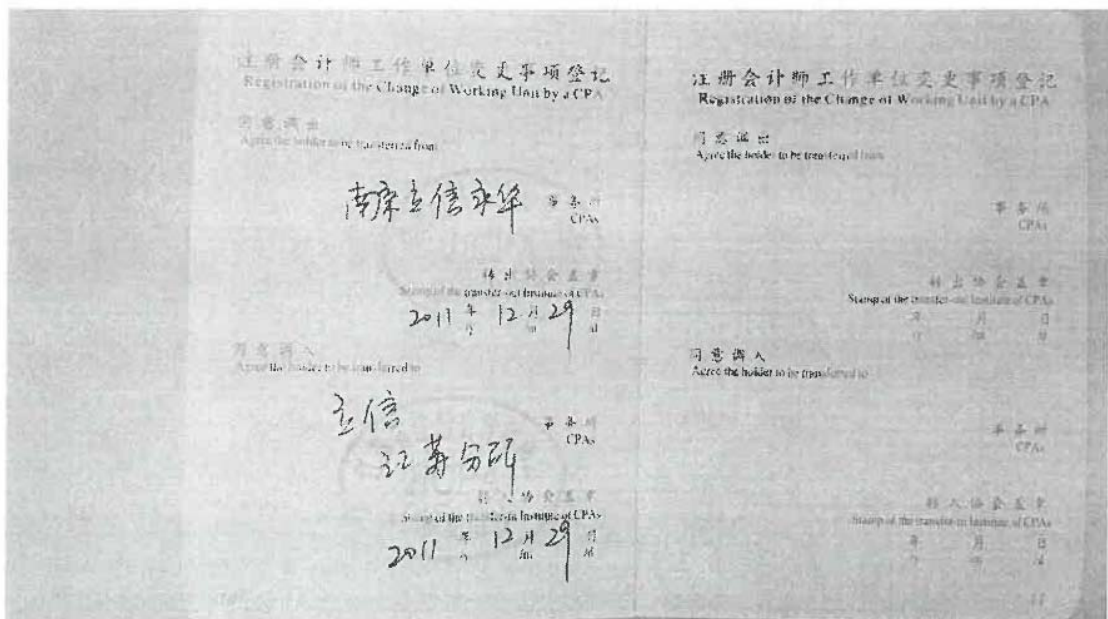 注册会计师工作单位变更事项登记
Registration of the Change of Working Unit by a CPA
同意调出
Agree the holder to be transferred from
南京立信永华 事务所
CPAs
转出协会盖章
Stamp of the transfer-out Institute of CPAs
2011 年 12 月 29 日
/y /m /d
同意调入
Agree the holder to be transferred to
立信
事务所
江苏分所
CPAs
转入协会盖章
Stamp of the transfer-in Institute of CPAs
2011 年 12 月 29 日
/y /m /d
注册会计师工作单位变更事项登记
Registration of the Change of Working Unit by a CPA
同意调出
Agree the holder to be transferred from
事务所
CPAs
转出协会盖章
Stamp of the transfer-out Institute of CPAs
年 月 日
/y /m /d
同意调入
Agree the holder to be transferred to
事务所
CPAs
转入协会盖章
Stamp of the transfer-in Institute of CPAs
年 月 日
/y /m /d
11